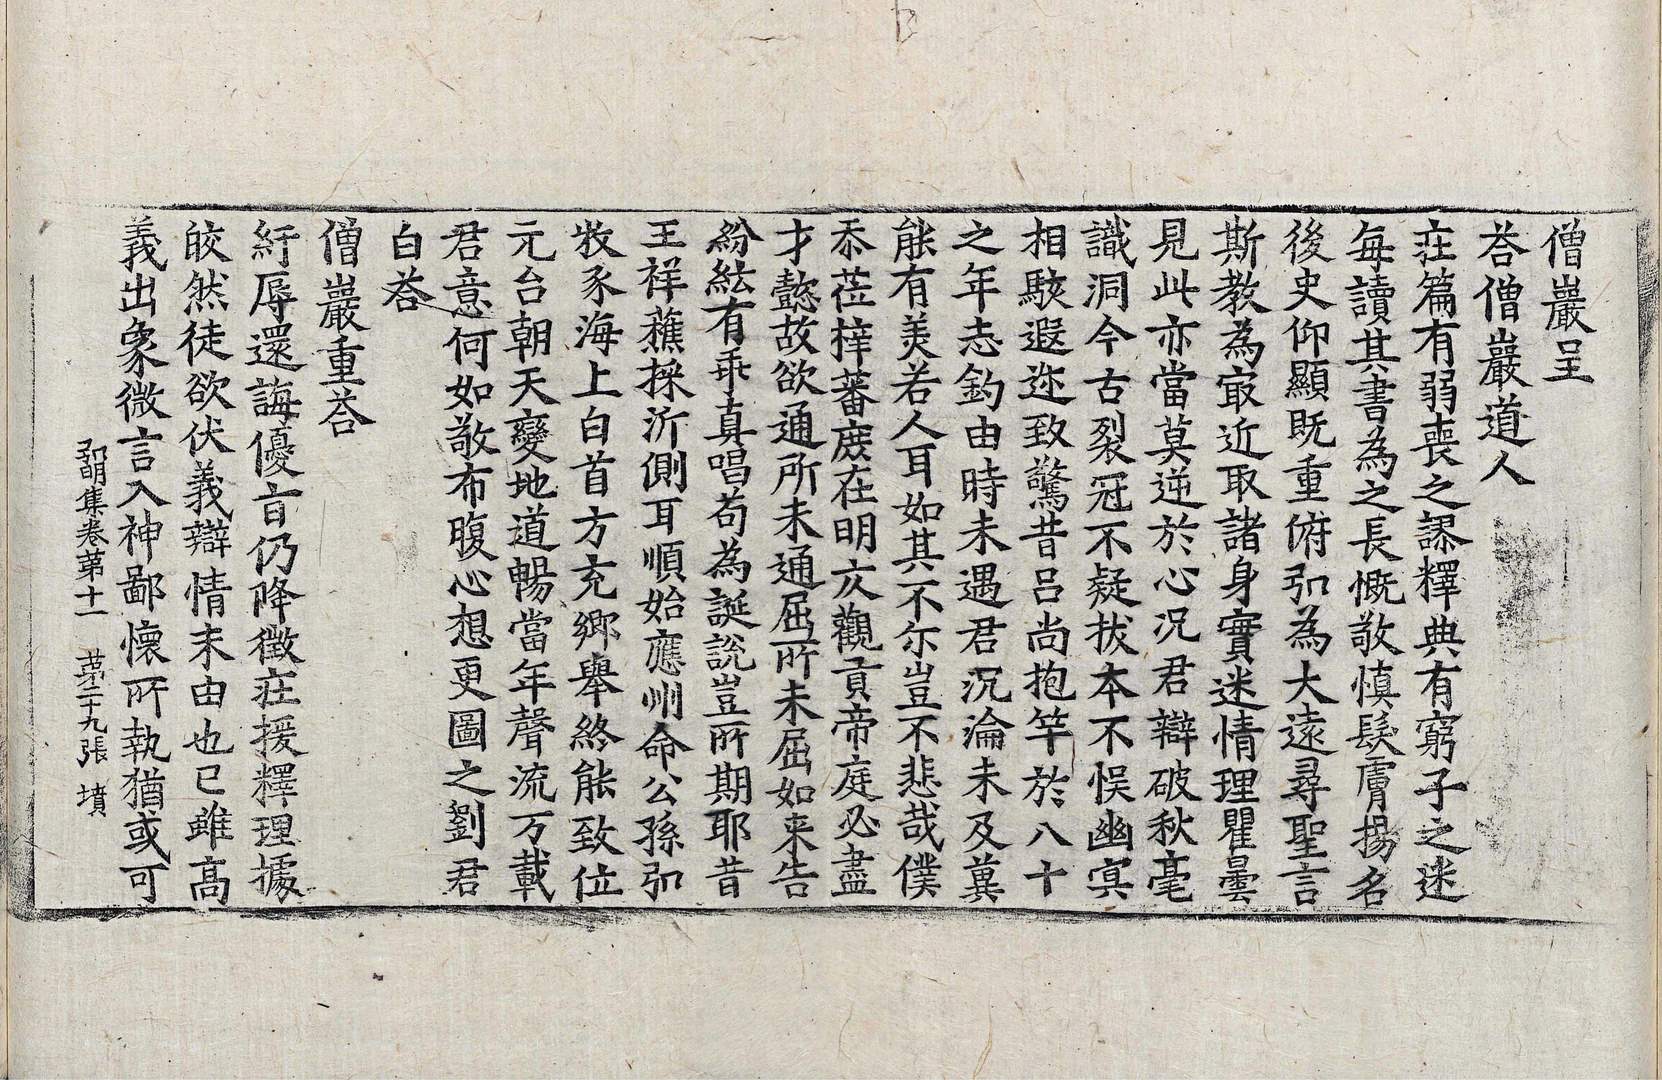 僧巖呈
荅僧巖道人
莊篇有弱喪之謬釋典有窮子之迷
每讀其書為之長慨敬慎髮膚揚名
後史仰顯既重俯弘為大遠尋聖言
斯教為㝡近取諸身實迷情理瞿曇
見此亦當莫逆於心況君辯破秋毫
識洞今古裂冠不疑拔本不悞幽冥
相駭遐迩致驚昔呂尚抱竿於八十
之年志釣由時未遇君沉淪未及冀
能有美若人耳如其不尔豈不悲哉僕
忝莅梓蕃庶在明亥觀貢帝庭必盡
才懿故欲通所未通屈所未屈如来告
紛紜有乖真唱苟為誕說豈所期耶昔
王祥蕉採沂側耳順始應州命公孫弘
牧豕海上白首方充鄉舉終能致位
元台朝天變地道暢當年聲流万載
君意何如敬布腹心想更圖之劉君
白荅
僧巖重荅
紆辱還誨優旨仍降徵莊援釋理據
皎然徒欲伏義辯情末由也已雖高
義出象微言入神鄙懷所執猶或可
弘明集卷第十一　第二十九張　墳